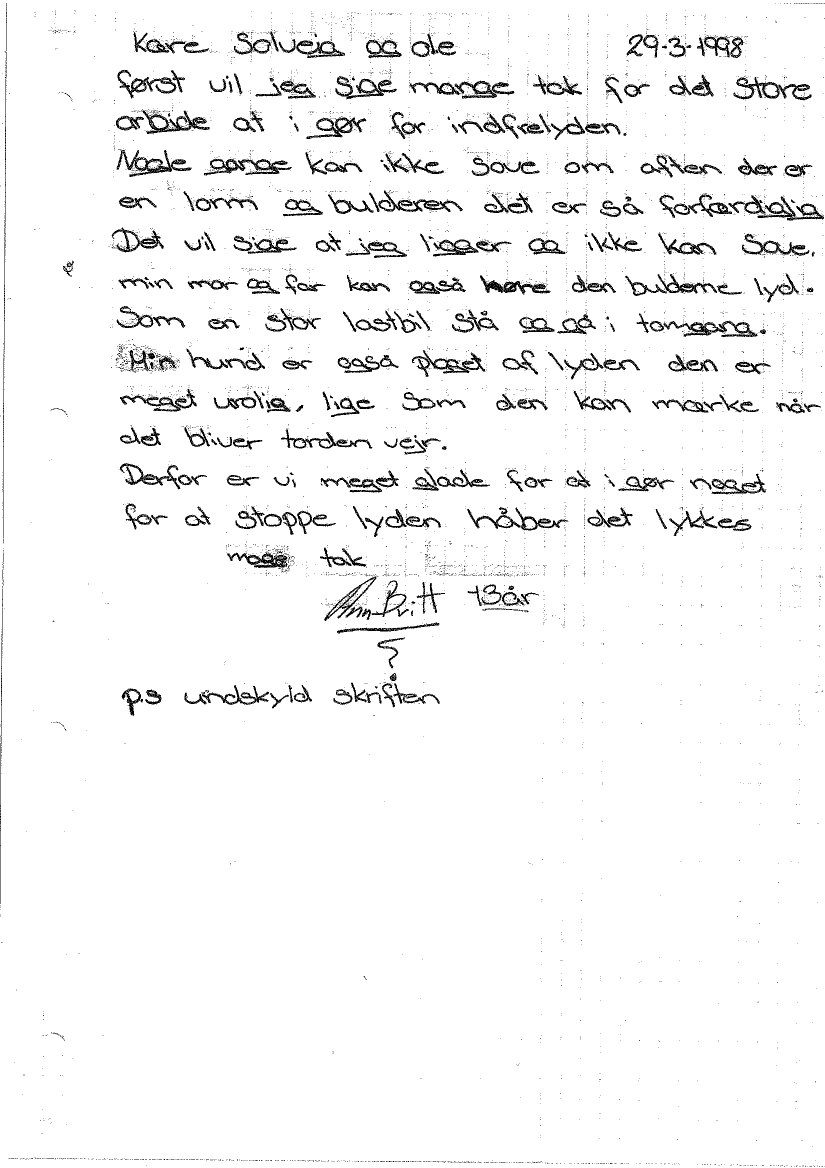 Kære Solveig og ole 29-3-1998
først vil jeg sige mange tak for det store
arbide at i gør for indfrelyden.
Nogle gange kan ikke Sove om aften der er
en larm og bulderen det er så forfærdiglig
Det vil sige at jeg ligger og ikke kan Sove.
min mor og far kan også høre den bulderne lyd.
Som en stor lastbil stå og gå i tomgang.
Min hund er også plaget af lyden den er
meget urolig, lige som den kan mærke når
det bliver torden vejr.
Derfor er vi meget glade for at i gør noget
for at stoppe lyden håber det lykkes
mage tak
Ann-Britt 13år
p.s undskyld skriften